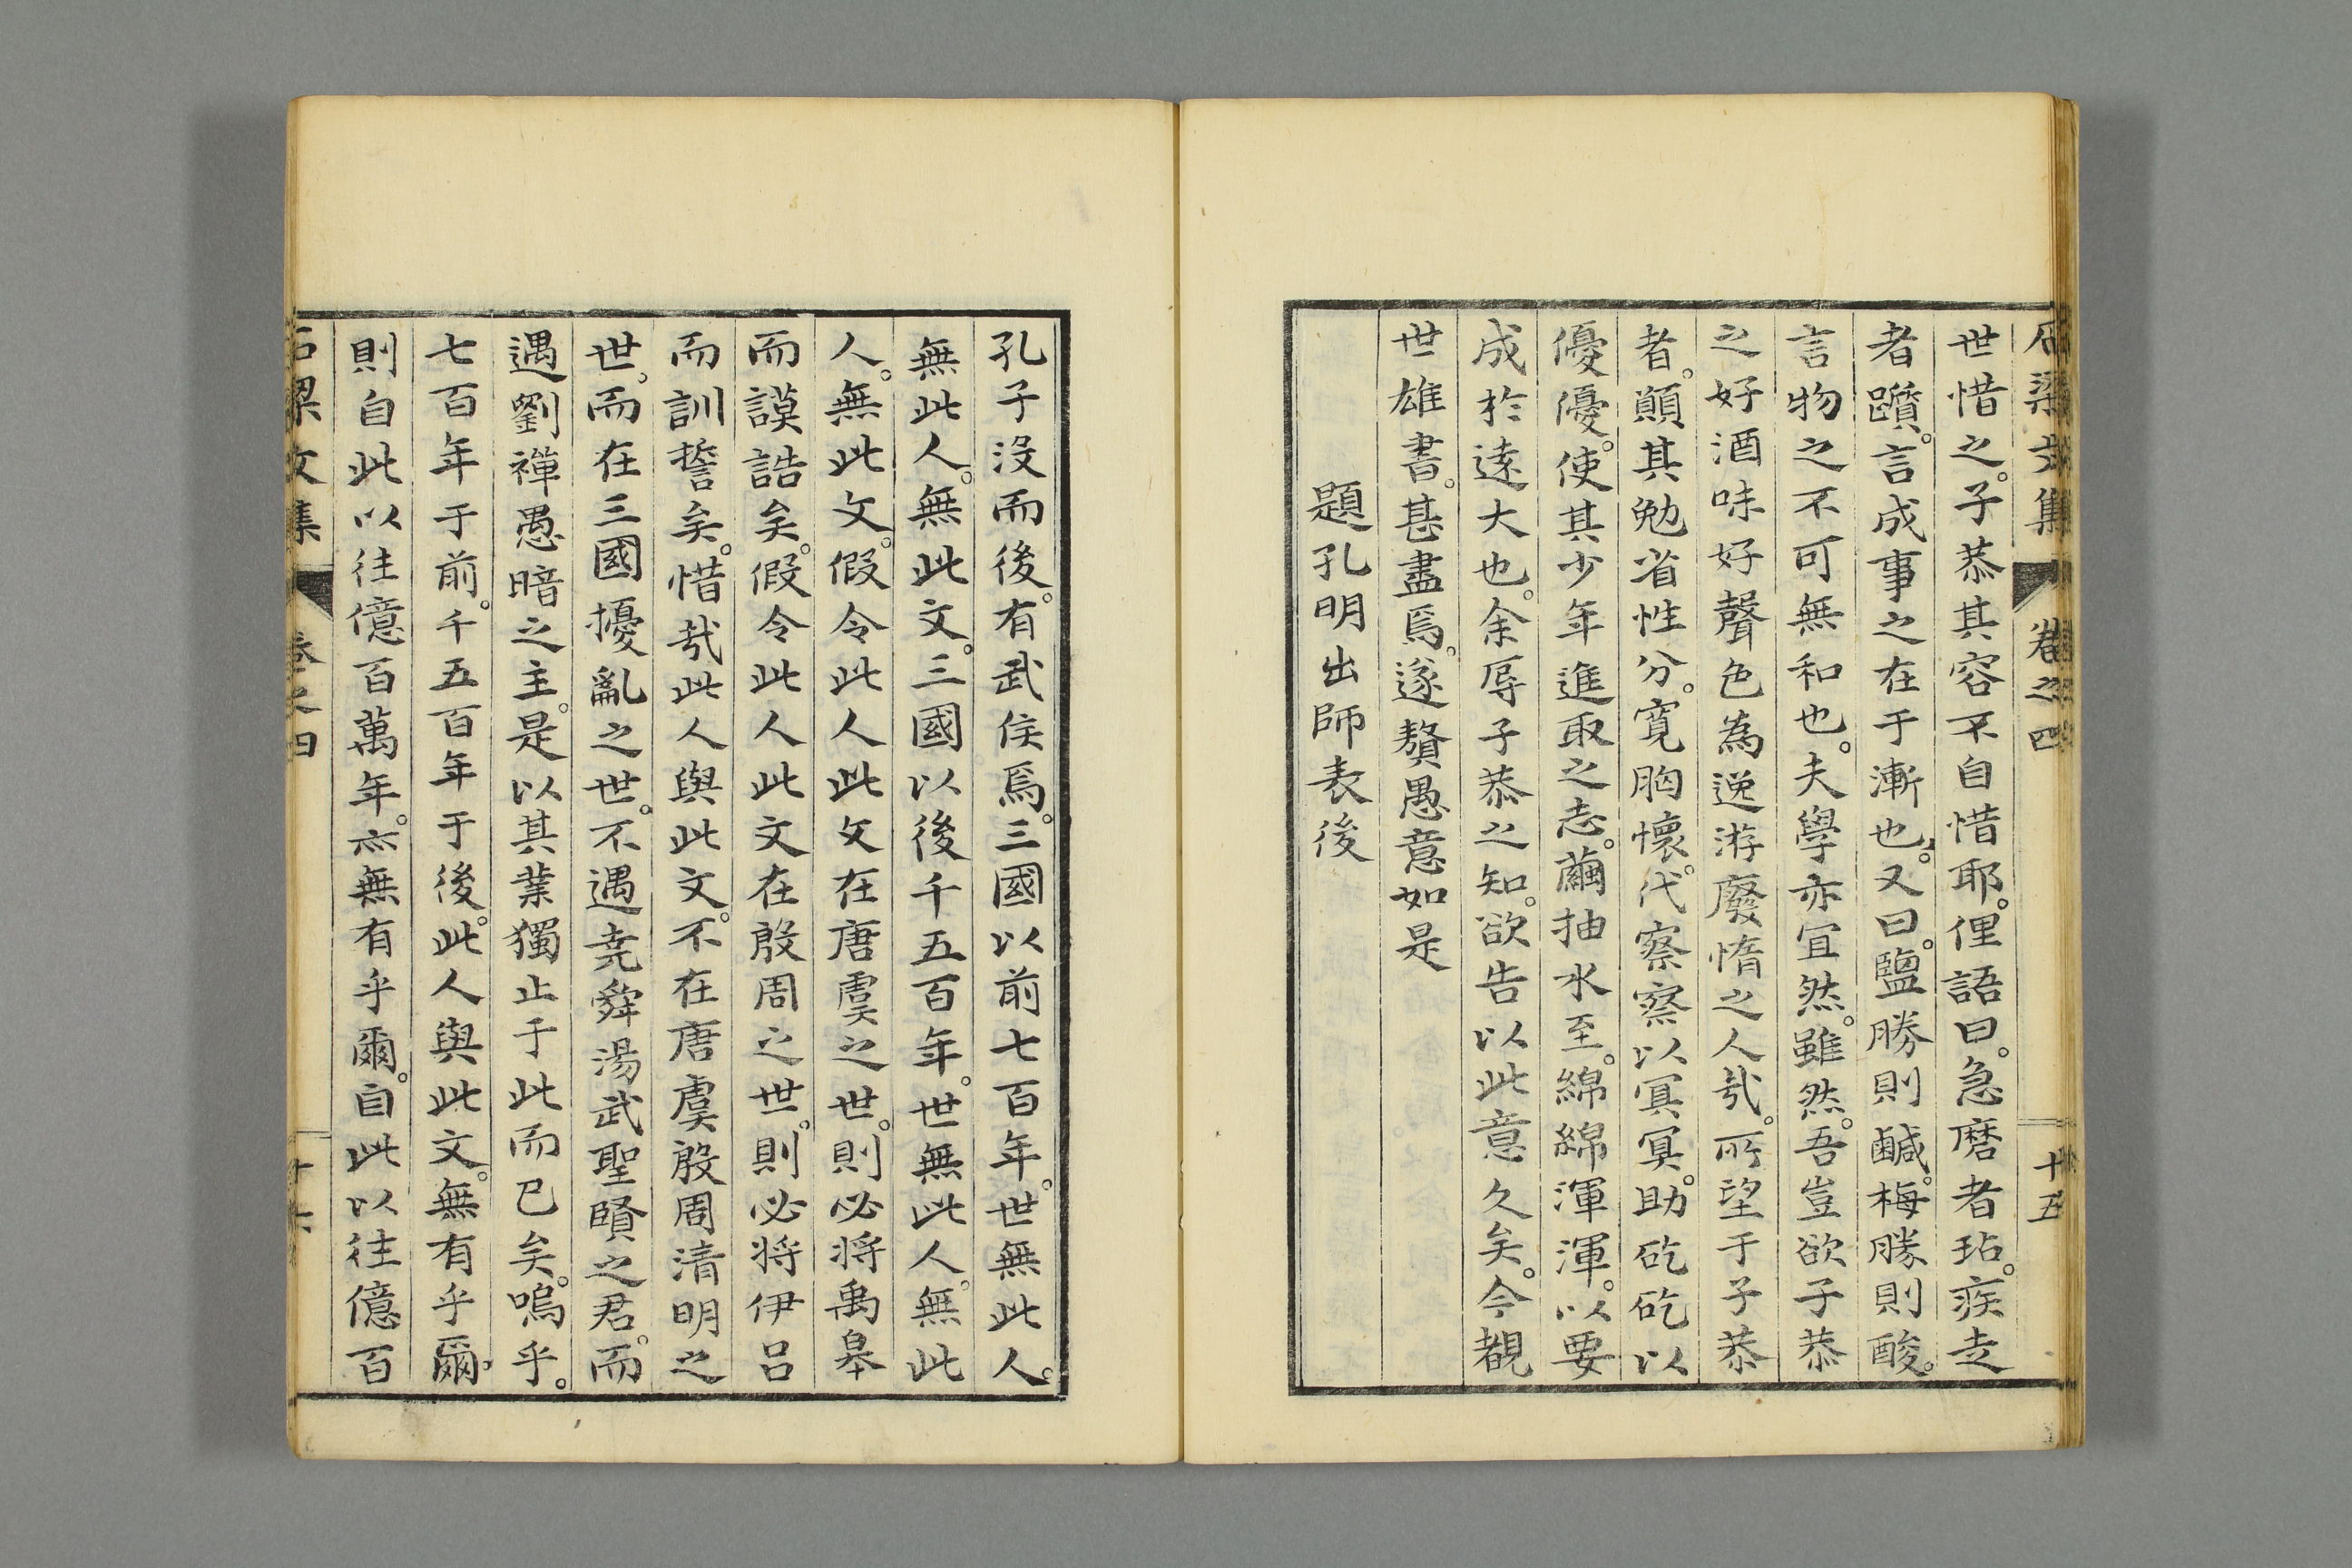 石梁文集 卷之四 十五
世惜之。子恭其容不自惜耶。俚語曰。急磨者玷。疾走
者躓。言成事之在于漸也。又曰。鹽勝則鹹。梅勝則酸。
言物之不可無和也。夫學亦宜然。雖然。吾豈欲子恭
之好酒味好聲色為逸游廢惰之人㢤。所望于子恭
者。願其勉省性分。寬胸懷。代察察以冥冥。助矻矻以
優優。使其少年進取之志。繭抽水至。綿綿渾渾。以要
成於遠大也。余辱子恭之知。欲告以此意久矣。今覩
世雄書。甚盡焉。遂贅愚意如是
題孔明出師表後
孔子沒而後。有武侯焉。三國以前七百年。世無此人。
無此人。無此文。三國以後千五百年。世無此人。無此
人。無此文。假令此人此文在唐虞之世。則必將禹皋
而謨誥矣。假令此人此文在殷周之世。則必將伊呂
而訓誓矣。惜㢤此人與此文。不在唐虞殷周清明之
世。而在三國擾亂之世。不遇堯舜湯武聖賢之君。而
遇劉禪愚暗之主。是以其業獨止于此而已矣。嗚乎。
七百年于前。千五百年于後。此人與此文。無有乎爾。
則自此以往億百萬年。亦無有乎爾。自此以往億百
石梁文集 卷之四 十六